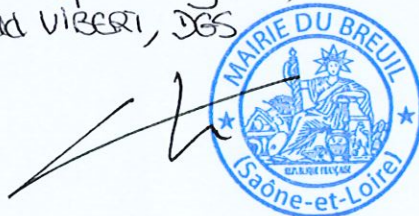 VIBERT, DGS
MAIRIE DU BREUIL
RÉPUBLIQUE FRANÇAISE
(Saône-et-Loire)